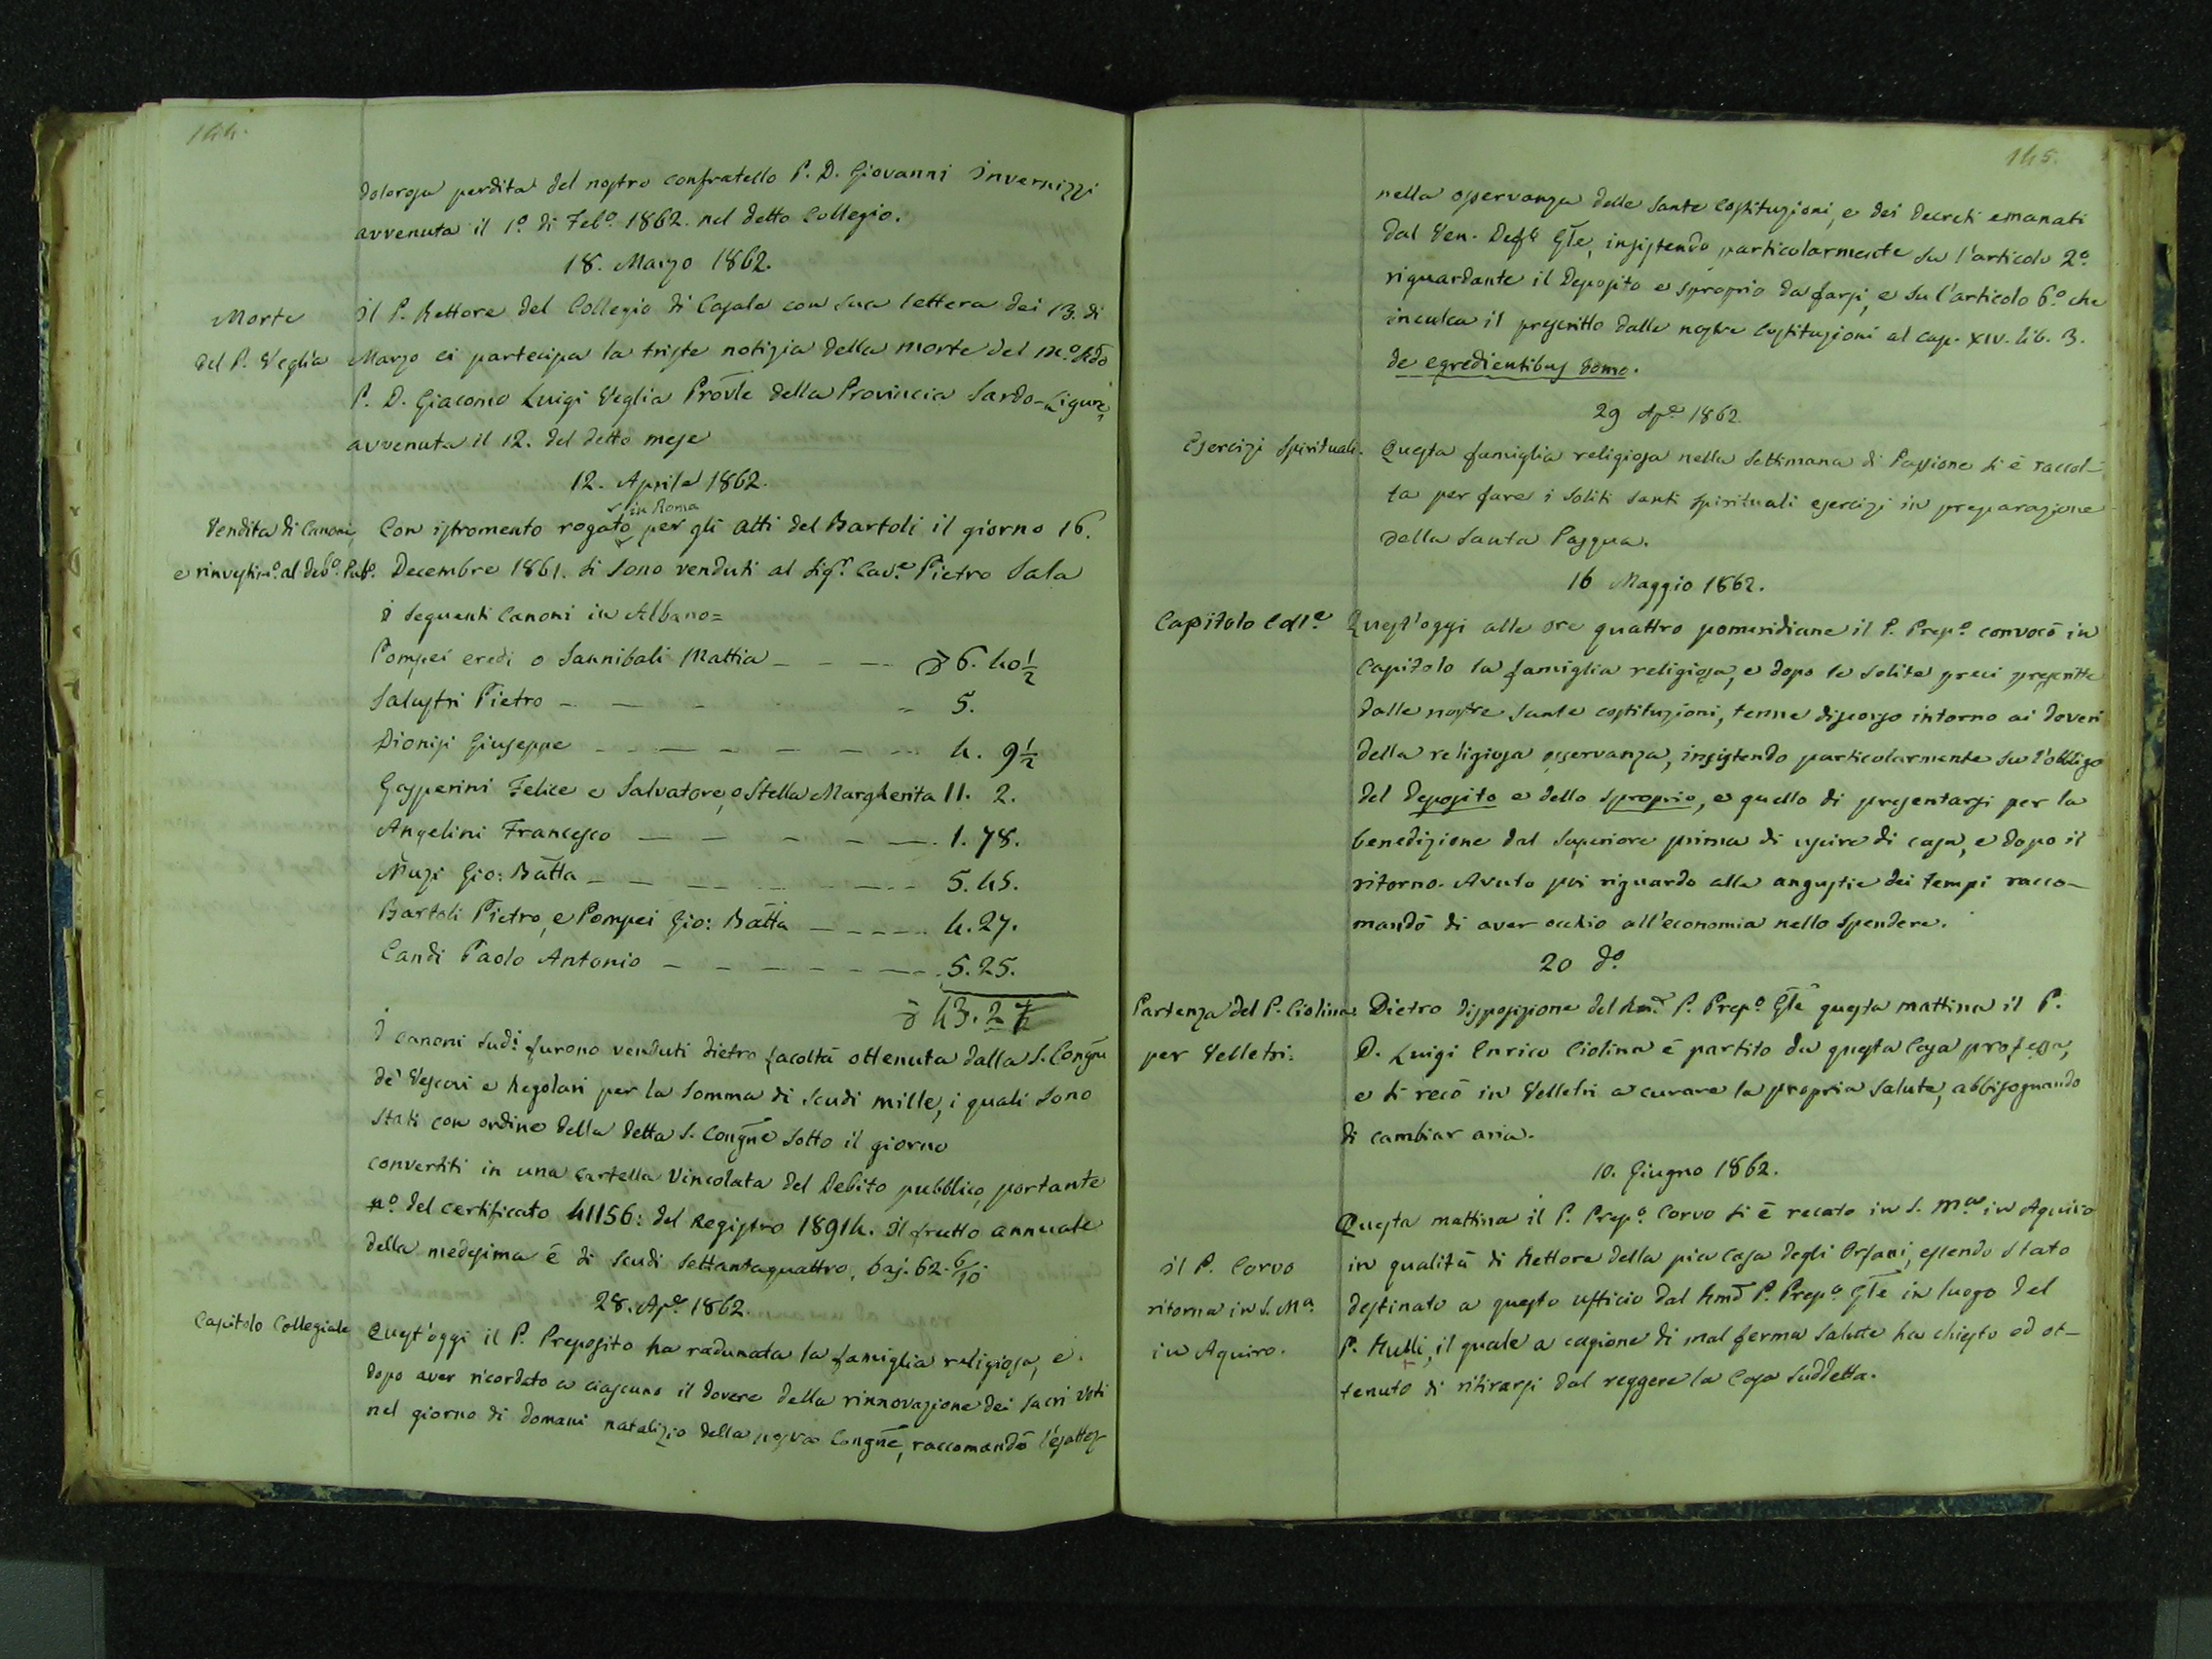 144.
dolorosa perdita del nostro confratello P. D. Giovanni Invernizzi
avvenuta il 1º di Febº 1862. nel detto Collegio.
18. Marzo 1862.
Morte
del P. Veglia
Il P. Rettore del Collegio di Casale con sua lettera dei 13. di
Marzo ci partecipa la triste notizia della morte del M.º Rdo
P. D. Giacomo Luigi Veglia Provle della Provincia Sardo-Ligure,
avvenuta il 12. del detto mese
12. Aprile 1862.
Vendita di Canoni
e rinvestimº. al debº. Pubº.
in Roma
Con istromento rogato per gli atti del Bartoli il giorno 16.
Decembre 1861. si sono venduti al Sigr. Cave Pietro Sala
i seguenti Canoni in Albano=
Pompei eredi o Sannibali Mattia - - - 6. 40½
Salustri Pietro - - - - 5.
Dionisi Giuseppe - - - - - - 4. 9½
Gasperini Felice e Salvatore, o Stella Margherita 11. 2.
Angelini Francesco - - - - - 1. 78.
Muzi Gio: Batta - - - - - - 5. 45.
Bartoli Pietro, e Pompei Gio: Batta - - - - - 4. 27.
Candi Paolo Antonio - - - - - - - 5. 25.
43. 27
I canoni sudi. furono venduti dietro facoltà ottenuta dalla S. Congne
de' Vescovi e Regolari per la somma di scudi mille, i quali sono
stati con ordine della detta S. Congne sotto il giorno
convertiti in una cartella vincolata del Debito pubblico, portante
nº. del certificato 41156: del Registro 18914. Il frutto annuale
della medesima è di scudi settantaquattro, baj. 62. 6/10.
28. Ape. 1862.
Capitolo Collegiale
Quest'oggi il P. Preposito ha radunata la famiglia religiosa, e
dopo aver ricordato a ciascuno il dovere della rinnovazione dei sacri voti
nel giorno di domani natalizio della nostra Congne, raccomandò l'esattez
145.
nella osservanza delle sante costituzioni, e dei decreti emanati
dal Ven. Defo Gle, insistendo particolarmente su l'articolo 2º.
riguardante il Deposito e sproprio da farsi, e su l'articolo 6º. che
inculca il prescritto dalle nostre costituzioni al cap. XIV. lib. 3.
de egredientibus domo.
29 Ape 1862
Esercizi Spirituali.
Questa famiglia religiosa nella settimana di Passione si è raccol-
ta per fare i soliti santi spirituali esercizi in preparazione
della Santa Pasqua.
16 Maggio 1862.
Capitolo Colle
Quest'oggi alle ore quattro pomeridiane il P. Prepº convocò in
Capitolo la famiglia religiosa, e dopo le solite preci prescritte
dalle nostre sante costituzioni, tenne discorso intorno ai doveri
della religiosa osservanza, insistendo particolarmente su l'obbligo
del Deposito e dello sproprio, e quello di presentarsi per la
benedizione dal Superiore prima di uscire di casa, e dopo il
ritorno. Avuto poi riguardo alle angustie dei tempi racco-
mandò di aver occhio all'economia nello spendere.
20 dº.
Partenza del P. Ciolina
per Velletri.
Dietro disposizione del Rmo. P. Prepº. Gle questa mattina il P.
D. Luigi Enrico Ciolina è partito da questa Casa professa,
e si recò in Velletri a curare la propria salute, abbisognando
di cambiar aria.
10. Giugno 1862.
Il P. Corvo
ritorna in S. Mª.
in Aquiro.
Questa mattina il P. Prepº. Corvo si è recato in S. Mª in Aquiro
in qualità di Rettore della pia Casa degli Orfani, essendo stato
destinato a questo ufficio dal Rmo P. Prepº. Gle in luogo del
P. Rulli, il quale a cagione di mal ferma salute ha chiesto ed ot-
tenuto di ritirarsi dal reggere la Casa suddetta.